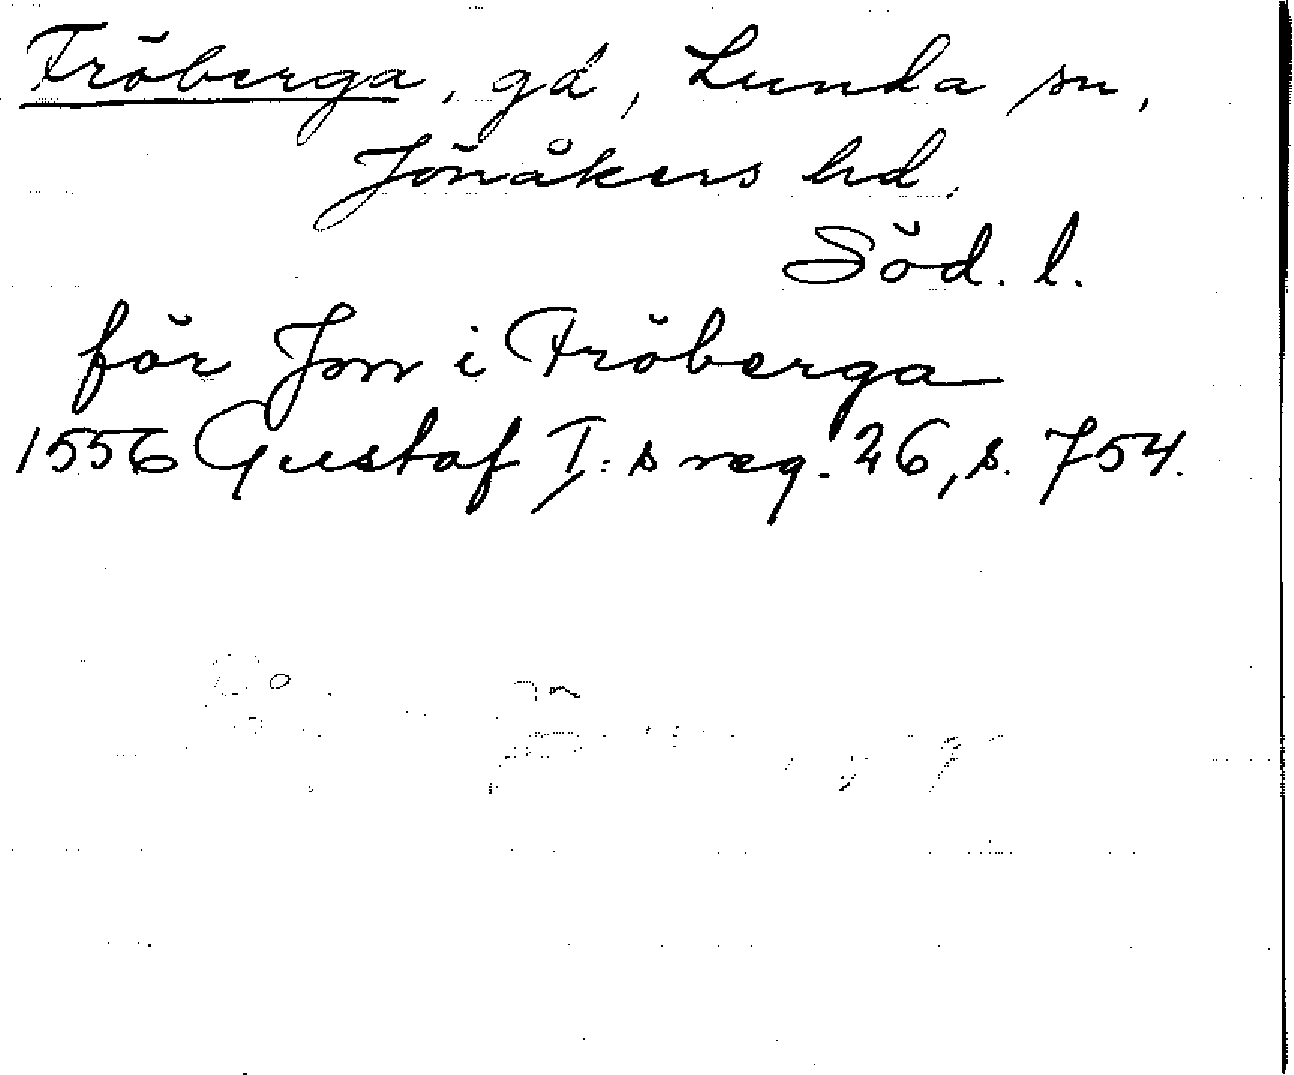 Fröberga, gd, Lunda sn,
Jönåkers hd.
Söd. l.
för Jon i Fröberga
1556 Gustaf I:s reg. 26, s. 754.